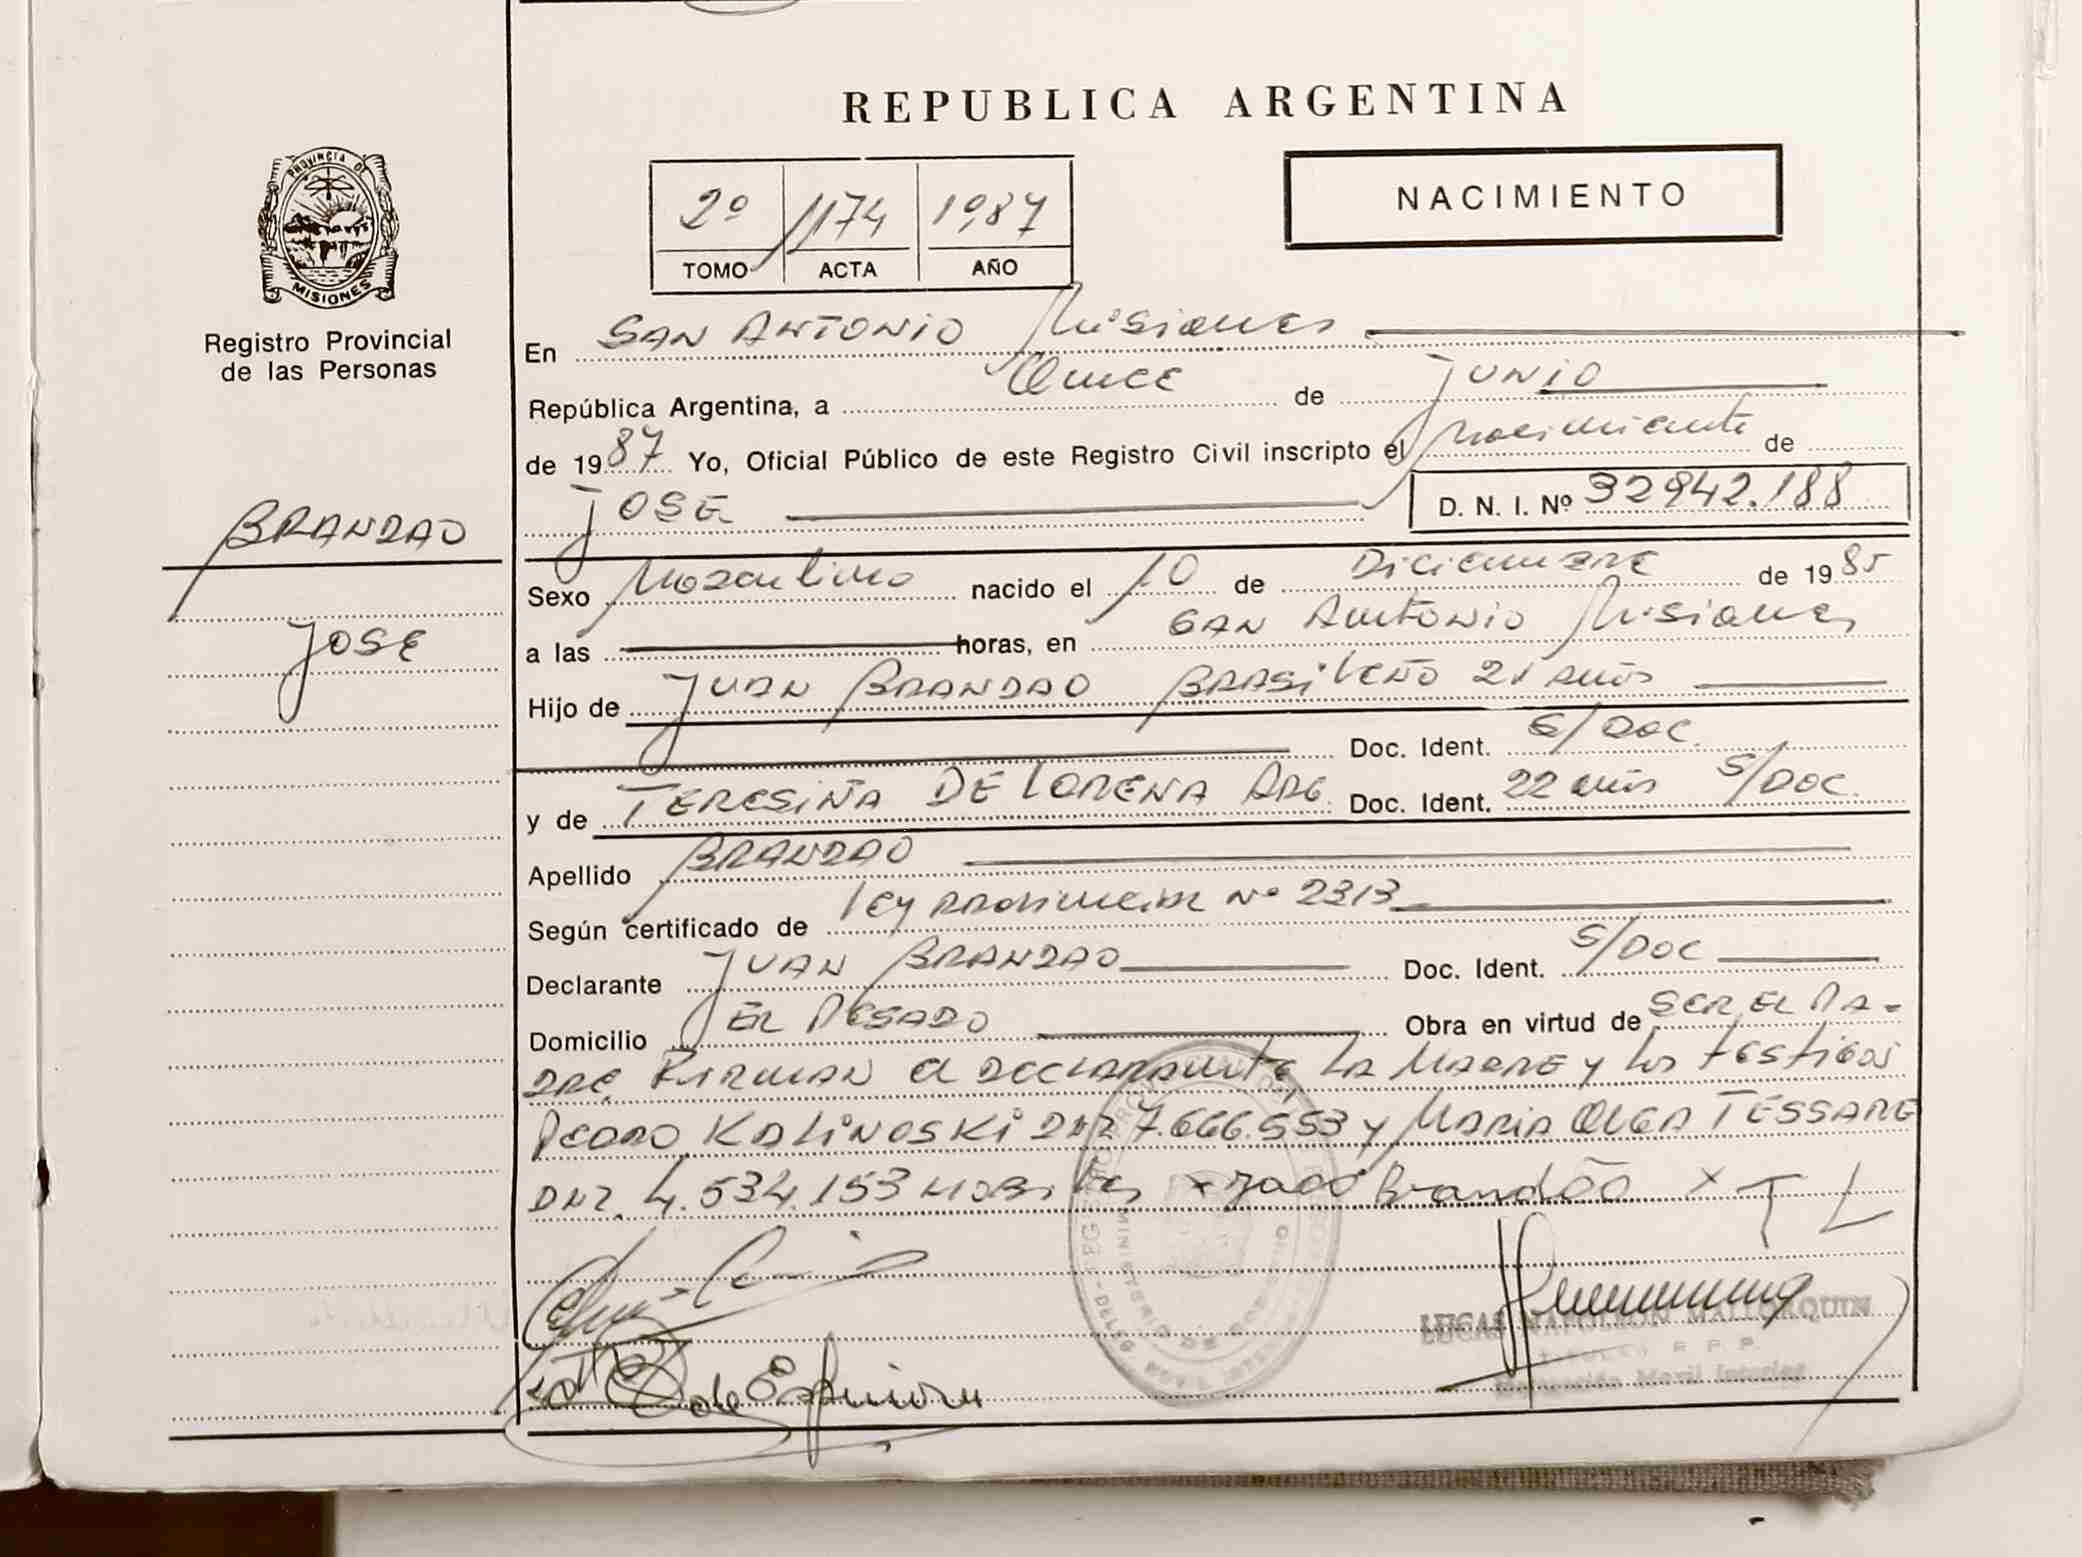 REPUBLICA ARGENTINA
NACIMIENTO
2º 1174 1987
TOMO ACTA AÑO
PROVINCIA DE
MISIONES
Registro Provincial
de las Personas
BRANDAO
JOSE
En SAN ANTONIO Misiones
República Argentina, a Quince de JUNIO
de 1987 Yo, Oficial Público de este Registro Civil inscripto el Nacimiento de
JOSE D. N. I. Nº 32942.188
Sexo Masculino nacido el 10 de Diciembre de 1985
a las horas, en SAN ANTONIO Misiones
Hijo de JUAN BRANDAO BRASILEÑO 21 años
Doc. Ident. S/DOC.
y de TERESIÑA DE LORENA ARG. Doc. Ident. 22 años S/DOC.
Apellido BRANDAO
Según certificado de Ley Provincial Nº 2313
Declarante JUAN BRANDAO Doc. Ident. S/DOC
Domicilio EL PESADO Obra en virtud de SER EL PA-
DRE. FIRMAN el DECLARANTE, LA MADRE y los testigos
PEDRO KALINOSKI DNI 7.666.553 y MARIA OLGA TESSARE
DNI. 4.534.153 HABILES x Brandão x T L
de Espinoza
LUCAS NAPOLEON MALLORQUIN
R. P. P.
Móvil Interior